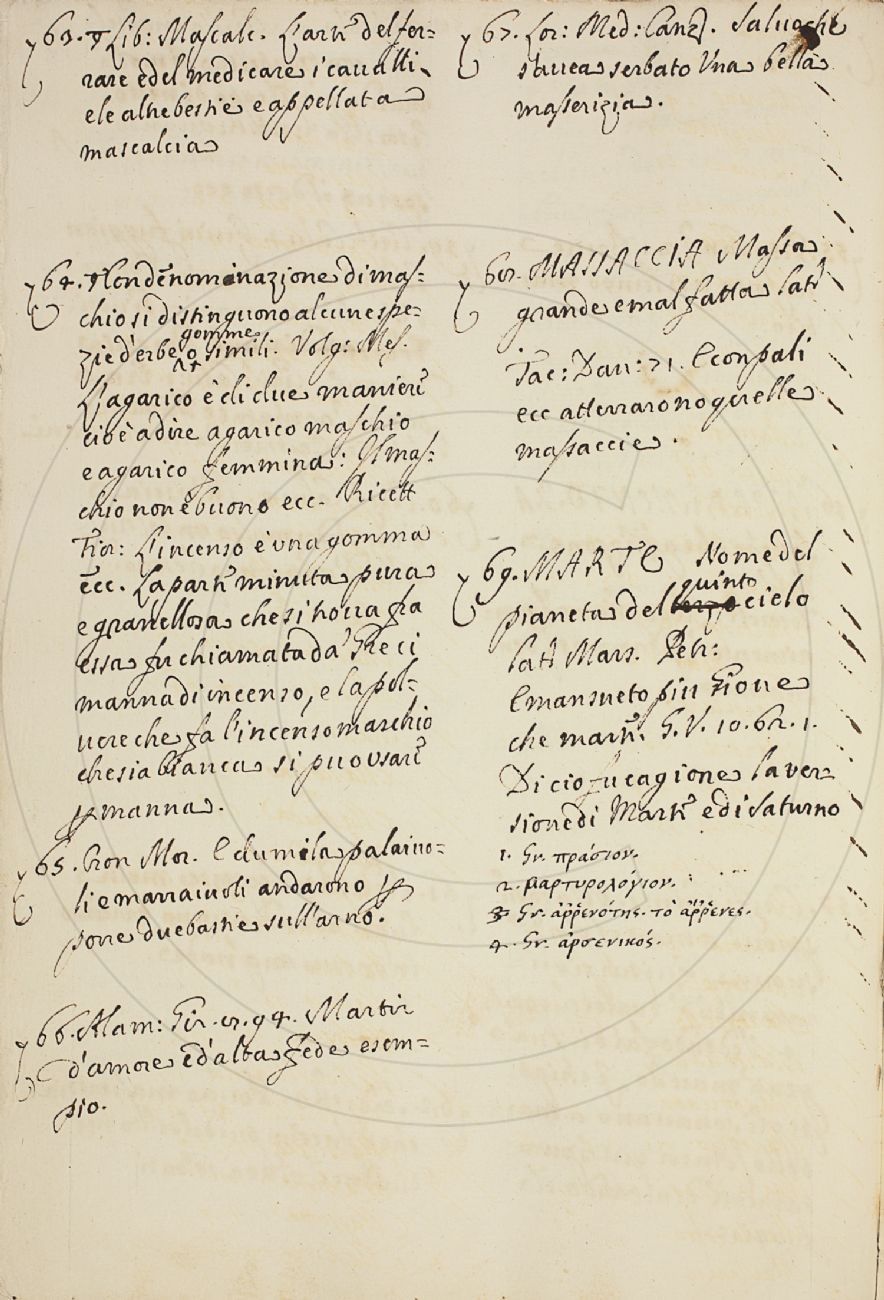 63. Lib: Mascalc. L'arte del fer=
rare e del medicare i cavalli
e le altre bestie e appellata
mascalcia
64. Con denominazione di mas-
chio si distinguono alcune spe-
zie d'erbe, o gomme simili. Volg: Mes.
L'agarico è di due maniere
cioè a dire agarico maschio
e agarico femmina: Il mas-
chio non è buono ecc. Ricett
Fior: L'incenso è una gomma
ecc. La parte minuta pura
e granellosa che si trova fra
essa fu chiamata da' Greci
manna di incenso, e la pol-
vere che fa l'incenso maschio
che sia bianca si puo usare
p manna.
65. Cron Mor. E dumila palaiuo-
li e marraiuoli andarono p
porre due bastie sull'arno.
66. Alam: Gir. 12. 94. Martir
d'amore e d'alta fede esem=
pio.
67. Lor: Med: Canz. Salvoche
s'avea serbato Una bella
masserizia.
68. MASSACCIA Massa
grande e mal fatta lat:
Tac: Dav: 71. E con pali
ecc atterrarono quelle
massaccie.
69. MARTE Nome del
pianeta del quinto cielo
lat: Mars. Petr:
E mansueto piu Giove
che marte. G. V. 10. 62. 1.
Di cio fu cagione la ver-
sione di Marte e di Saturno
1. Gr. πράσιον.
2. μαρτυρολόγιον.
3. Gr. ἀῤῥενότης. τὸ ἄῤῥενες.
4. Gr. ἀρσενικός.